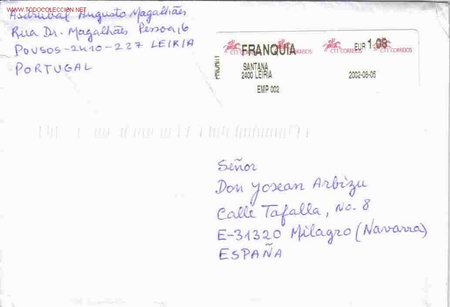 www.TODOCOLECCION.NET
Asdrúbal Augusto Magalhães
Rua Dr. Magalhães Pessoa, 6
POUSOS-2410-227 LEIRIA
PORTUGAL
FRANQUIA EUR 1,08
CTT CORREIOS CTT CORREIOS
SANTANA
2400 LEIRIA 2002-08-06
EMP 002
Señor
Don Yosean Arbizu
Calle Tafalla, No. 8
E-31320 Milagro (Navarra)
ESPAÑA